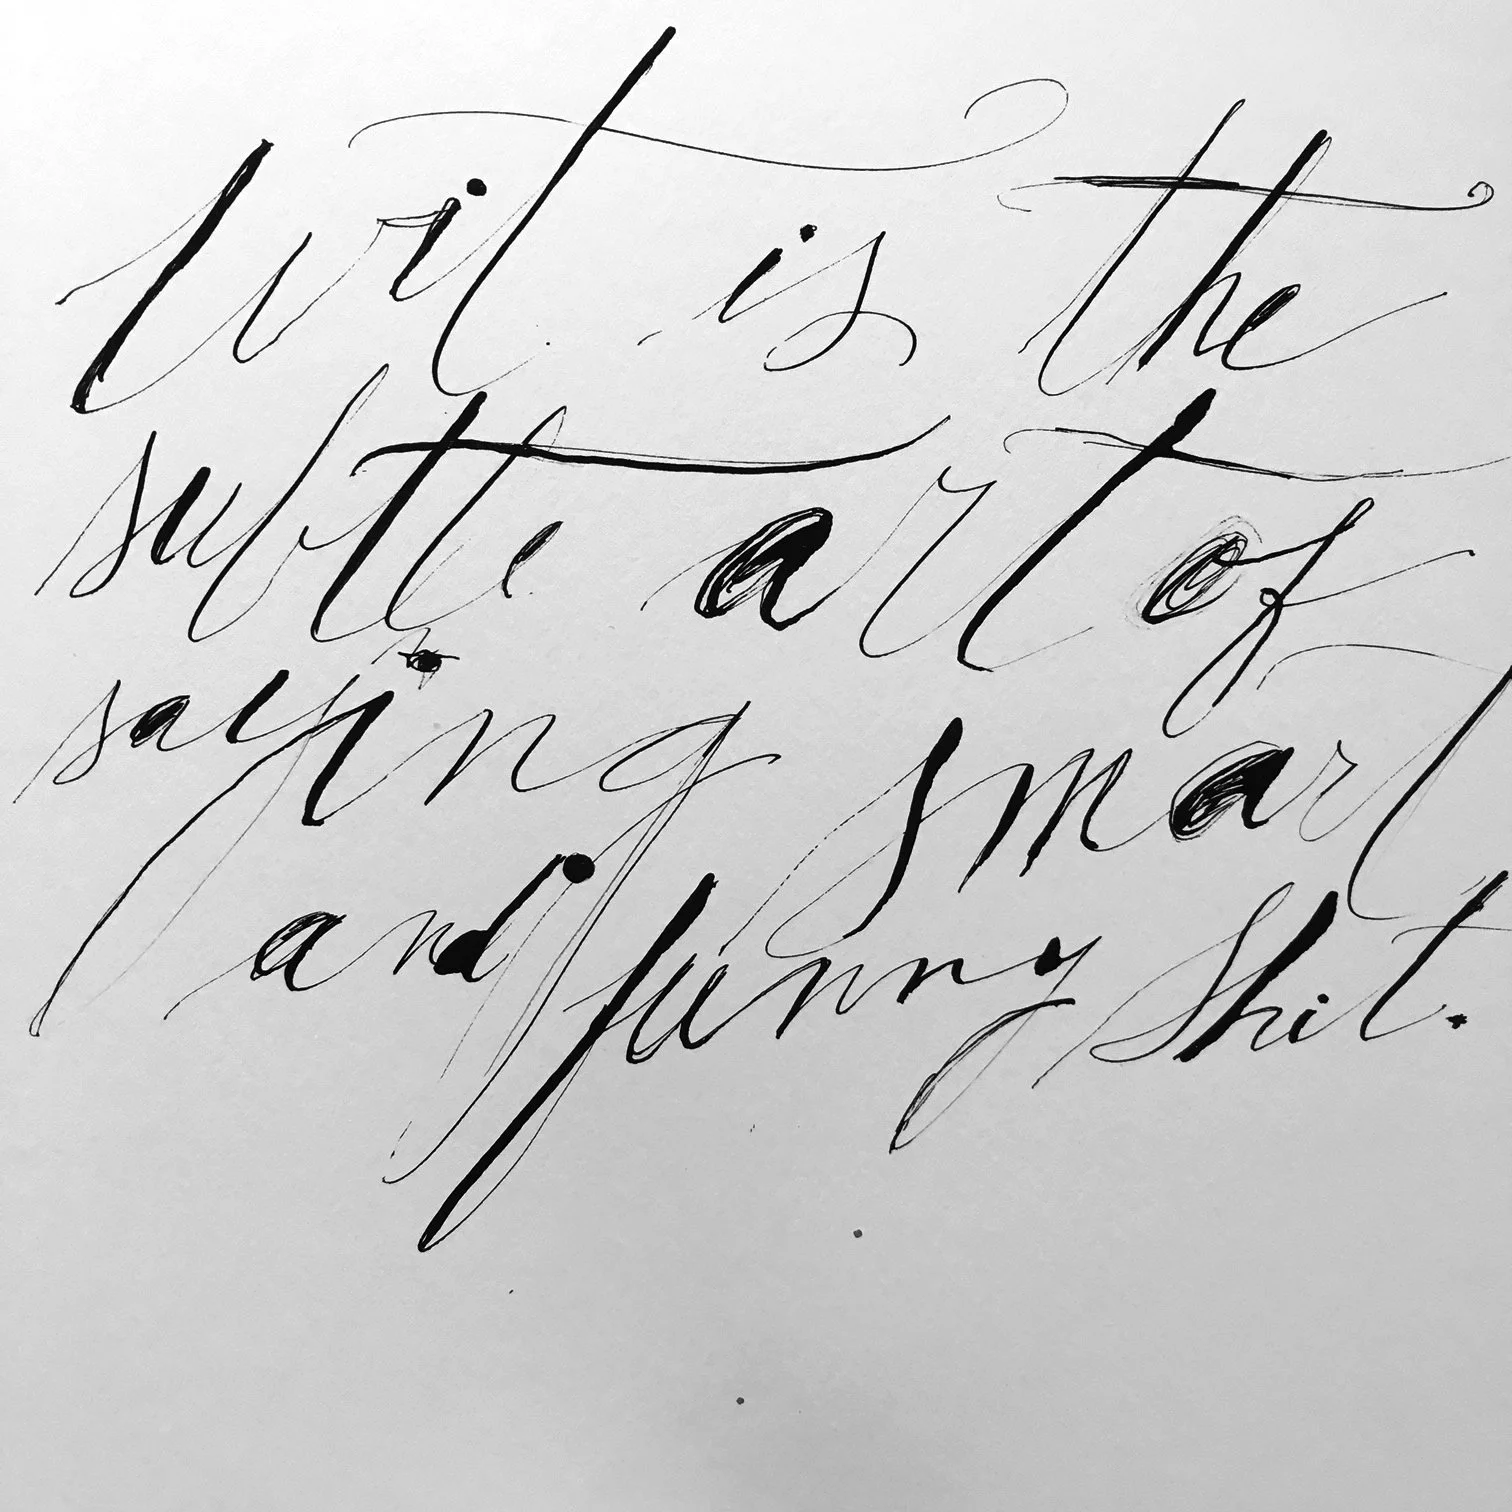 Wit is the
subtle art of
saying smart
and funny shit.